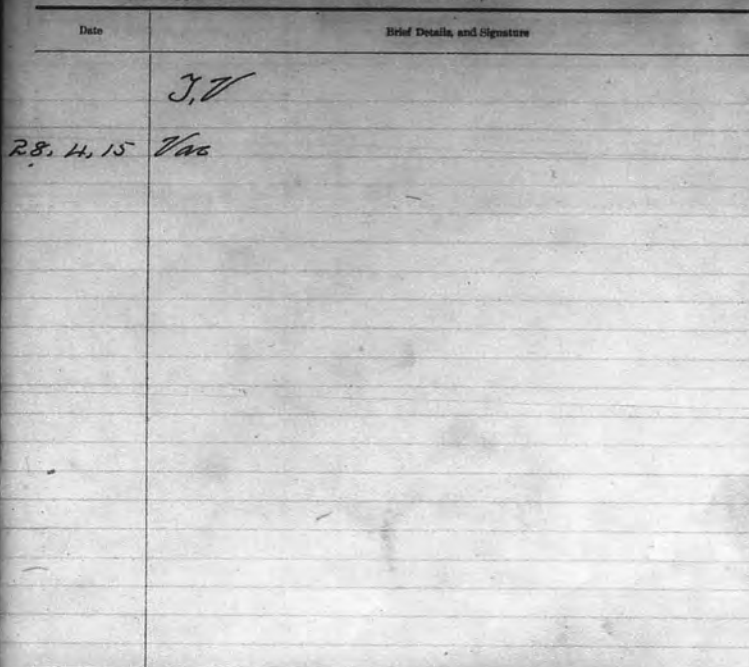 Date Brief Details, and Signature
T.V
28.4.15 Vac